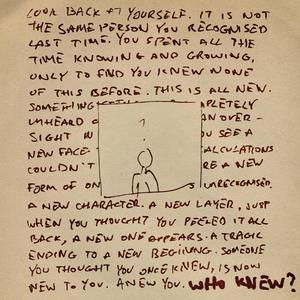 LOOK BACK AT YOURSELF. IT IS NOT
THE SAME PERSON YOU RECOGNISED
LAST TIME. YOU SPENT ALL THE
TIME KNOWING AND GROWING,
ONLY TO FIND YOU KNEW NONE
OF THIS BEFORE. THIS IS ALL NEW.
SOMETHING COMPLETELY
UNHEARD AN OVER-
SIGHT IN YOU SEE A
NEW FACE CALCULATIONS
COULDN'T A NEW
FORM OF UNRECOGNISED.
?
A NEW CHARACTER. A NEW LAYER, JUST
WHEN YOU THOUGHT YOU PEELED IT ALL
BACK, A NEW ONE APPEARS. A TRAGIC
ENDING TO A NEW BEGINNING. SOMEONE
YOU THOUGHT YOU ONCE KNEW, IS NOW
NEW TO YOU. A NEW YOU. WHO KNEW?